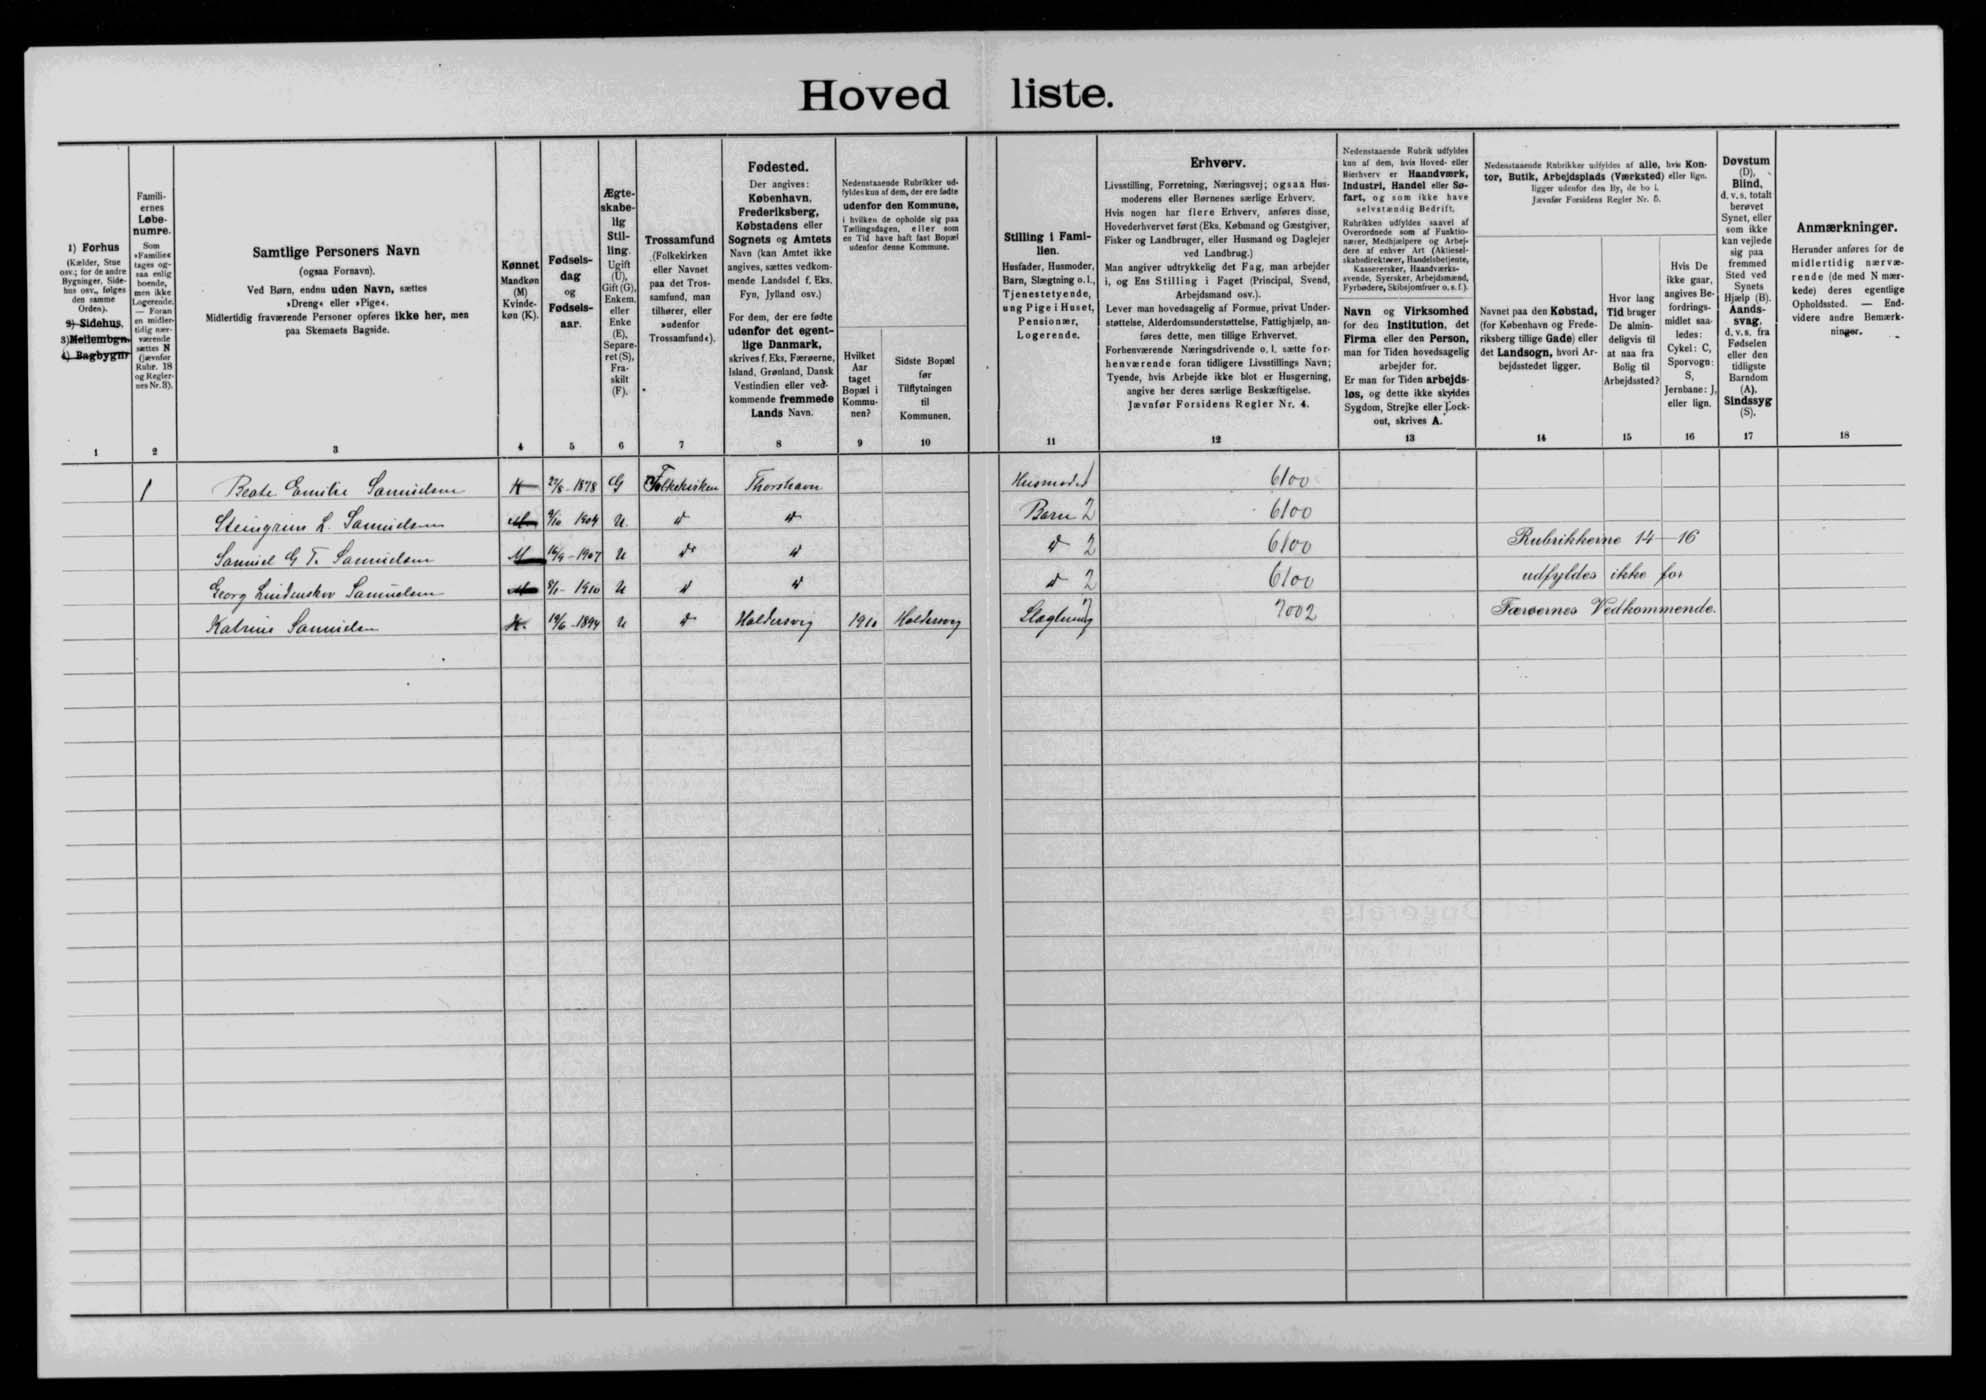 Hovedliste.
1) Forhus
(Kælder, Stue
osv.; for de andre
Bygninger, Side-
hus osv., følges
den samme
Orden).
2) Sidehus,
3) Mellembgn.
4) Bagbygn
1
Famili-
ernes
Løbe-
numre.
Som
»Familie«
tages og-
saa enlig
boende,
men ikke
Logerende.
— Foran
en midler-
tidig nær-
værende
sættes N
(jævnfør
Rubr. 18
og Regler-
nes Nr. 3).
2
Samtlige Personers Navn
(ogsaa Fornavn).
Ved Børn, endnu uden Navn, sættes
»Dreng« eller »Pige«.
Midlertidig fraværende Personer opføres ikke her, men
paa Skemaets Bagside.
3
Kønnet
Mandkøn
(M)
Kvinde-
køn (K).
4
Fødsels-
dag
og
Fødsels-
aar.
5
Ægte-
skabe-
lig
Stil-
ling.
Ugift
(U),
Gift (G),
Enkem.
eller
Enke
(E),
Separe-
ret (S),
Fra-
skilt
(F).
6
Trossamfund
(Folkekirken
eller Navnet
paa det Tros-
samfund, man
tilhører, eller
»udenfor
Trossamfund«).
7
Fødested.
Der angives:
København,
Frederiksberg,
Købstadens eller
Sognets og Amtets
Navn (kan Amtet ikke
angives, sættes vedkom-
mende Landsdel f. Eks.
Fyn, Jylland osv.)
For dem, der ere fødte
udenfor det egent-
lige Danmark,
skrives f. Eks. Færøerne,
Island, Grønland, Dansk
Vestindien eller ved-
kommende fremmede
Lands Navn.
8
Nedenstaaende Rubrikker ud-
fyldes kun af dem, der ere fødte
udenfor den Kommune,
i hvilken de opholde sig paa
Tællingsdagen, eller som
en Tid have haft fast Bopæl
udenfor denne Kommune.
Hvilket
Aar
taget
Bopæl i
Kommu-
nen?
9
Sidste Bopæl
før
Tilflytningen
til
Kommunen.
10
Stilling i Fami-
lien.
Husfader, Husmoder,
Barn, Slægtning o. l.,
Tjenestetyende,
ung Pige i Huset,
Pensionær,
Logerende.
11
Erhverv.
Livsstilling, Forretning, Næringsvej; ogsaa Hus-
moderens eller Børnenes særlige Erhverv.
Hvis nogen har flere Erhverv, anføres disse,
Hovederhvervet først (Eks. Købmand og Gæstgiver,
Fisker og Landbruger, eller Husmand og Daglejer
ved Landbrug.)
Man angiver udtrykkelig det Fag, man arbejder
i, og Ens Stilling i Faget (Principal, Svend,
Arbejdsmand osv.).
Lever man hovedsagelig af Formue, privat Under-
støttelse, Alderdomsunderstøttelse, Fattighjælp, an-
føres dette, men tillige Erhvervet.
Forhenværende Næringsdrivende o. l. sætte for-
henværende foran tidligere Livsstillings Navn;
Tyende, hvis Arbejde ikke blot er Husgerning,
angive her deres særlige Beskæftigelse.
Jævnfør Forsidens Regler Nr. 4.
12
Nedenstaaende Rubrik udfyldes
kun af dem, hvis Hoved- eller
Bierhverv er Haandværk,
Industri, Handel eller Sø-
fart, og som ikke have
selvstændig Bedrift.
Rubrikken udfyldes saavel af
Overordnede som af Funktio-
nærer, Medhjælpere og Arbej-
dere af enhver Art (Aktiesel-
skabsdirektører, Handelsbetjente,
Kasserersker, Haandværks-
svende, Syersker, Arbejdsmænd,
Fyrbødere, Skibsjomfruer o. s. f.).
Navn og Virksomhed
for den Institution, det
Firma eller den Person,
man for Tiden hovedsagelig
arbejder for.
Er man for Tiden arbejds-
løs, og dette ikke skyldes
Sygdom, Strejke eller Lock-
out, skrives A.
13
Nedenstaaende Rubrikker udfyldes af alle, hvis Kon-
tor, Butik, Arbejdsplads (Værksted) eller lign.
ligger udenfor den By, de bo i.
Jævnfør Forsidens Regler Nr. 5.
Navnet paa den Købstad,
(for København og Frede-
riksberg tillige Gade) eller
det Landsogn, hvori Ar-
bejdsstedet ligger.
14
Hvor lang
Tid bruger
De almin-
deligvis til
at naa fra
Bolig til
Arbejdssted?
15
Hvis De
ikke gaar,
angives Be-
fordrings-
midlet saa-
ledes:
Cykel: C,
Sporvogn:
S,
Jernbane: J,
eller lign.
16
Døvstum
(D),
Blind,
d. v. s. totalt
berøvet
Synet, eller
som ikke
kan vejlede
sig paa
fremmed
Sted ved
Synets
Hjælp (B).
Aands-
svag,
d. v. s. fra
Fødselen
eller den
tidligste
Barndom
(A).
Sindssyg
(S).
17
Anmærkninger.
Herunder anføres for de
midlertidig nærvæ-
rende (de med N mær-
kede) deres egentlige
Opholdssted. — End-
videre andre Bemærk-
ninger.
18
1 Beate Emilie Samuelsen K 22/8-1878 G Folkekirken Thorshavn Husmoder 1 6100
Steingrim L. Samuelsen M 9/10 1904 U d d Barn 2 6100
Samuel G. T. Samuelsen M 16/9-1907 U do d d 2 6100 Rubrikkerne 14-16
Georg Lindenskov Samuelsen M 8/1-1910 U d d d 2 6100 udfyldes ikke for
Katrine Samuelsen K. 19/6-1894 U d Haldersvig 1910 Haldersvig Slægtning 7002 Færøernes Vedkommende.